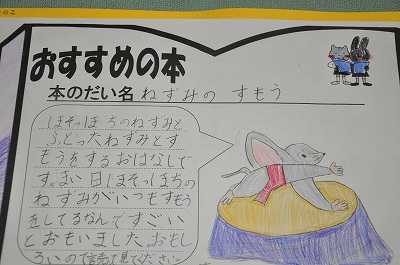 おすすめの本
本のだい名 ねずみの すもう
ほそっぽちのねずみと
ふとったねずみとす
もうをするおはなしで
す。まい日ほそっぽちの
ねずみがいつもすもう
をしてるなんですごい
とおもいました。おもし
ろいので読んで見てください。